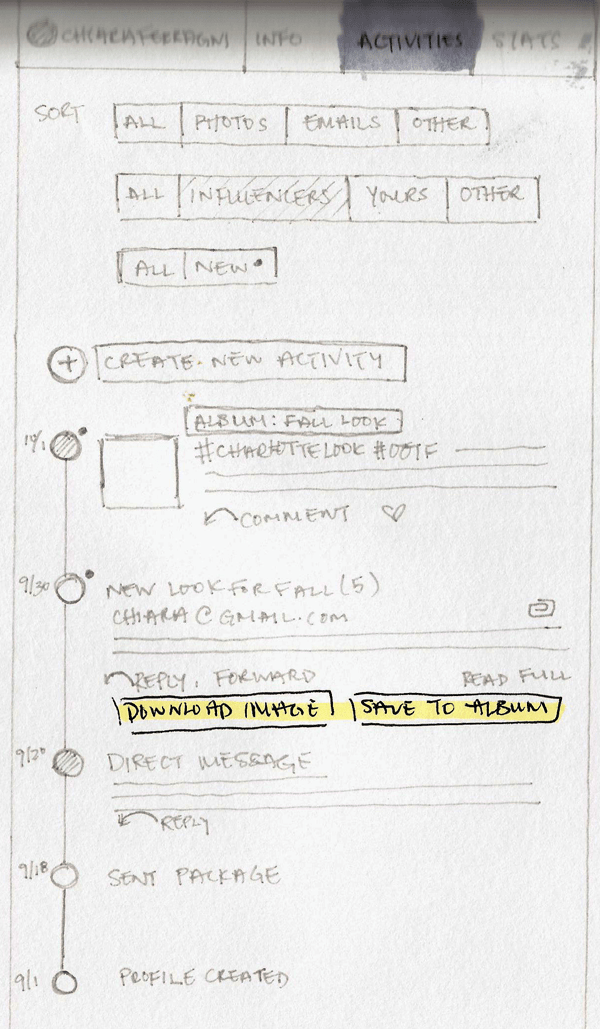 CHIARAFERRAGNI INFO ACTIVITIES STATS
SORT ALL PHOTOS EMAILS OTHER
ALL INFLUENCERS YOURS OTHER
ALL NEW
+ CREATE NEW ACTIVITY
ALBUM: FALL LOOK
#CHARLOTTELOOK #OOTF
COMMENT
9/30 NEW LOOK FOR FALL (5)
CHIARA@GMAIL.COM
REPLY, FORWARD READ FULL
DOWNLOAD IMAGE SAVE TO ALBUM
9/20 DIRECT MESSAGE
REPLY
9/18 SENT PACKAGE
9/1 PROFILE CREATED